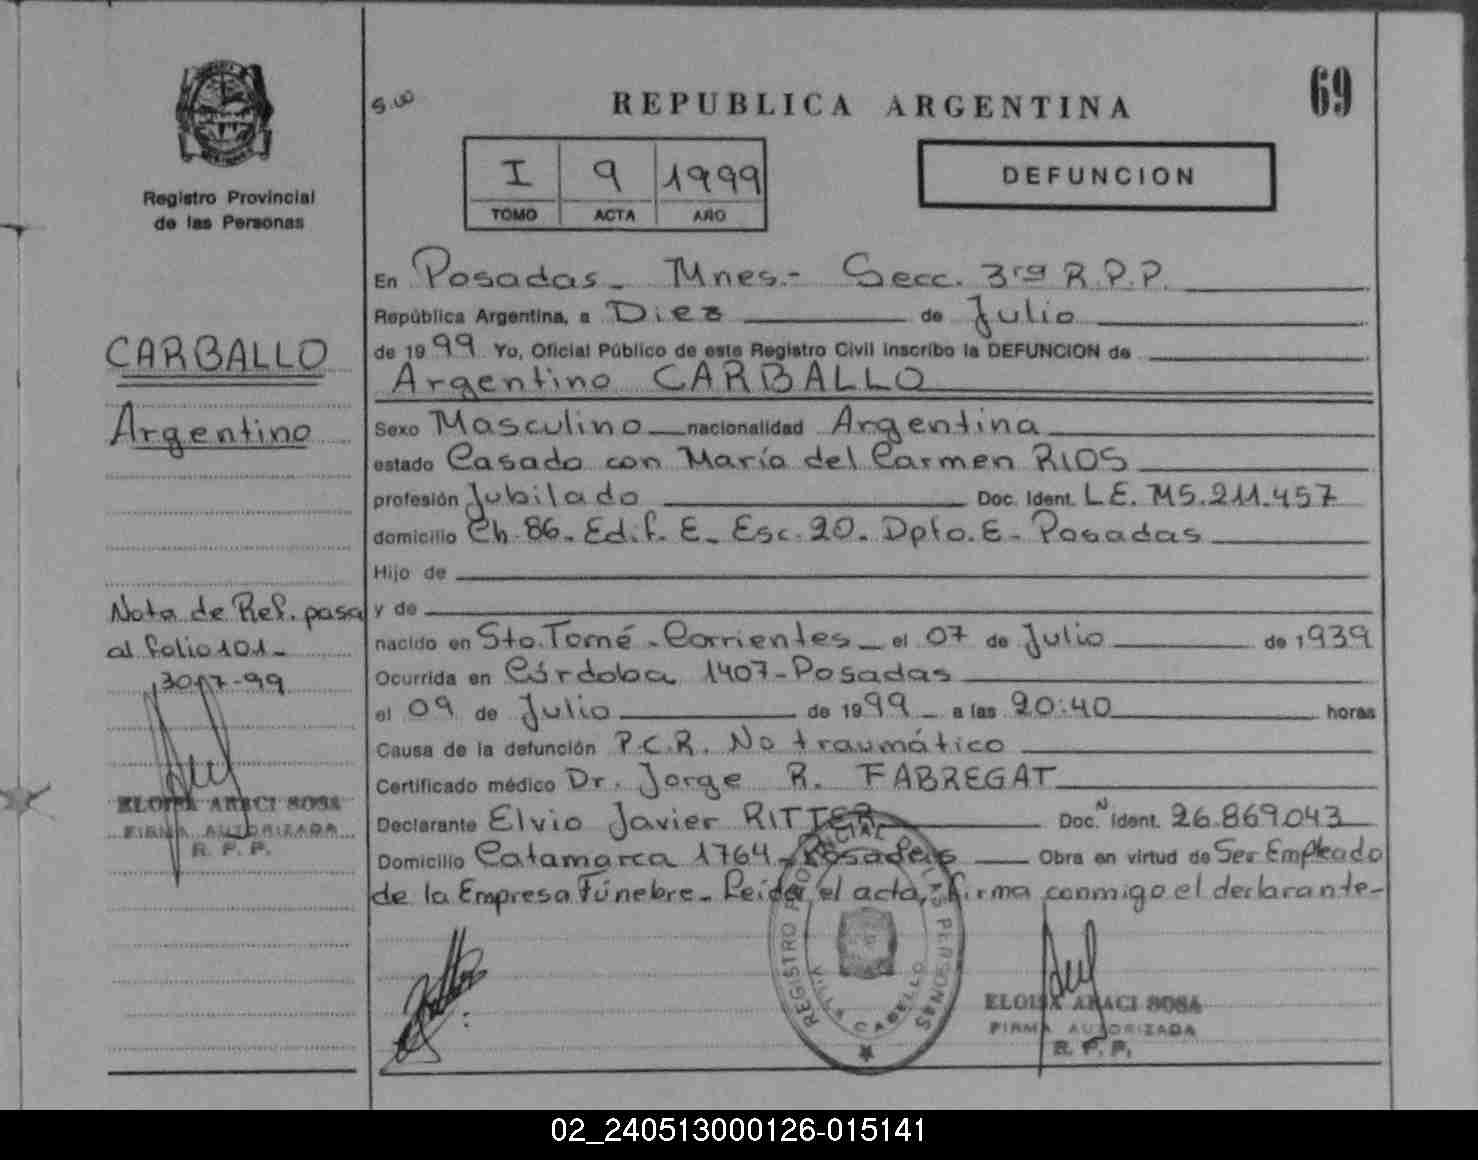 69
5.00
REPUBLICA ARGENTINA
Registro Provincial
de las Personas
I 9 1999
TOMO ACTA AÑO
DEFUNCION
CARBALLO
Argentino
Nota de Ref. pasa
al folio 101-
ELOISA ARACI SOSA
FIRMA AUTORIZADA
R. P. P.
En Posadas - Mnes.- Secc. 3ra R.P.P.
República Argentina, a Diez de Julio
de 1999 Yo, Oficial Público de este Registro Civil inscribo la DEFUNCION de
Argentino CARBALLO
Sexo Masculino nacionalidad Argentina
estado Casado con María del Carmen RIOS
profesión Jubilado Doc. Ident. L.E. M5.211.457
domicilio Ch. 86. Edif. E. Esc. 20. Dpto. E - Posadas
Hijo de
y de
nacido en Sto. Tomé - Corrientes el 07 de Julio de 1939
Ocurrida en Córdoba 1407 - Posadas
el 09 de Julio de 1999 a las 20:40 horas
Causa de la defunción P.C.R. No traumático
Certificado médico Dr. Jorge R. FABREGAT
Declarante Elvio Javier RITTER Doc. N Ident. 26.869.043
Domicilio Catamarca 1764 - Posadas Obra en virtud de Ser Empleado
de la Empresa Fúnebre - Leída el acta, firma conmigo el declarante-
REGISTRO PROVINCIAL DE LAS PERSONAS
VILLA CABELLO
ELOISA ARACI SOSA
FIRMA AUTORIZADA
R. P. P.
02_240513000126-015141